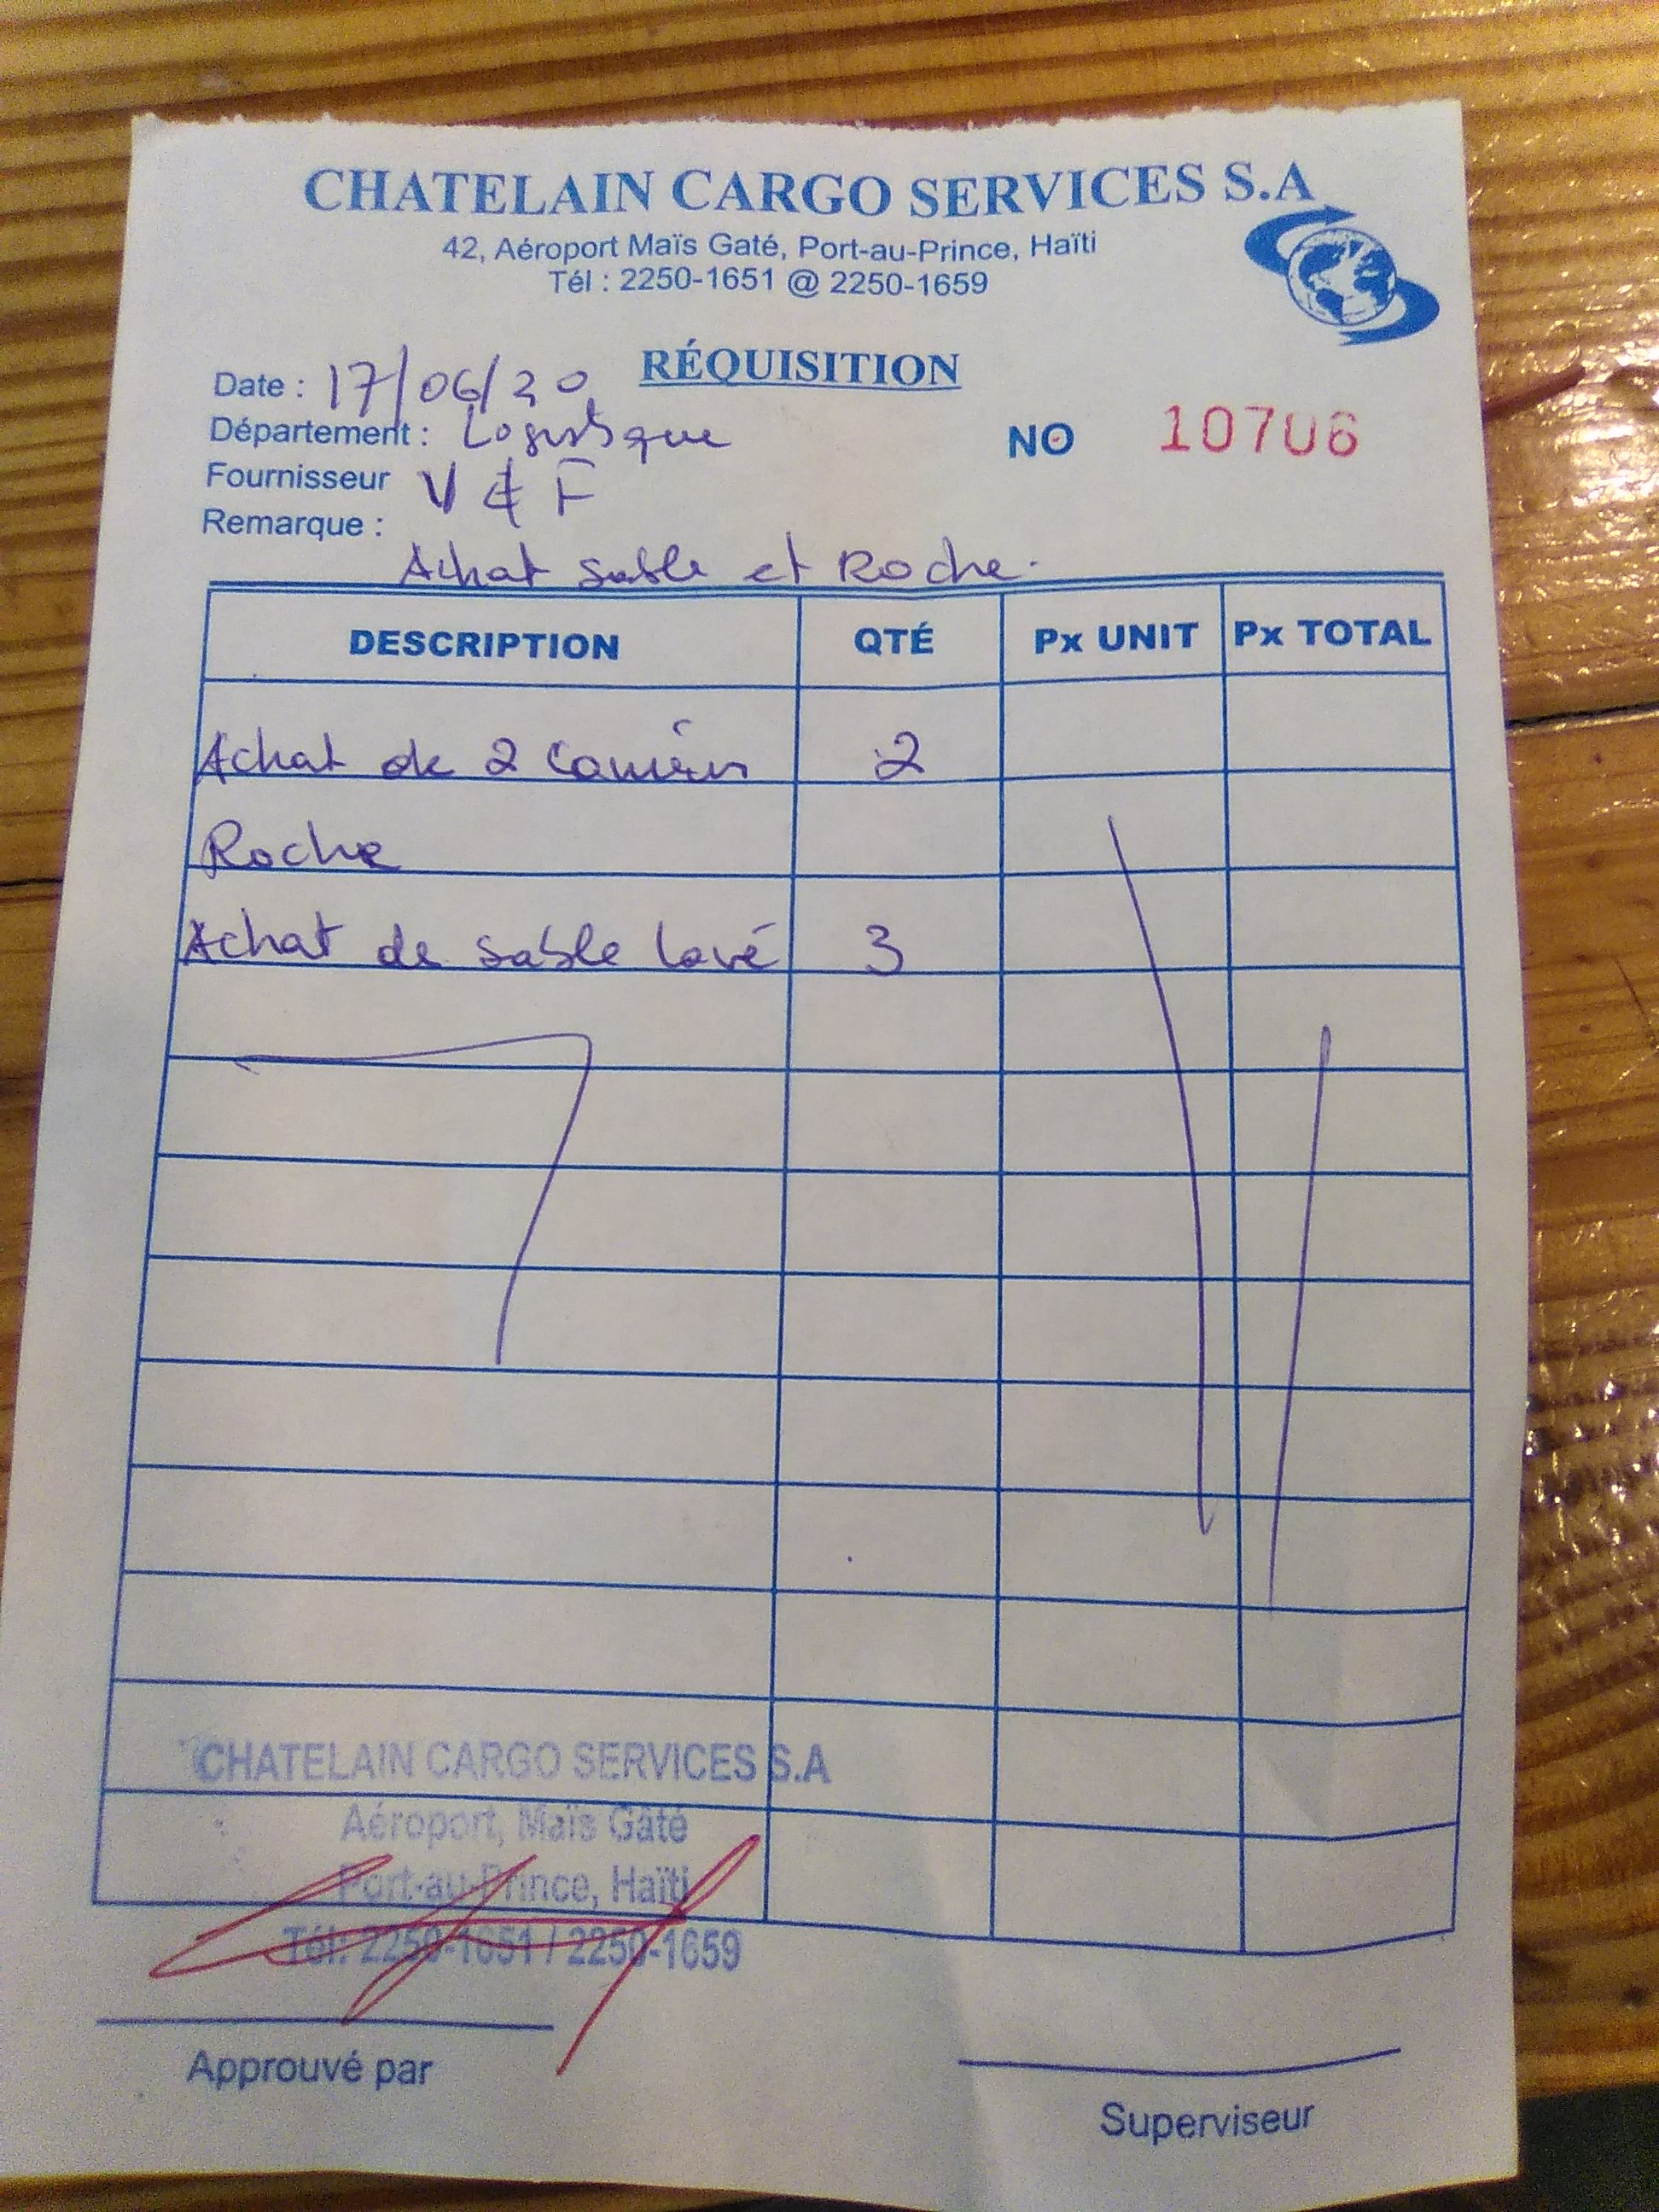 CHATELAIN CARGO SERVICES S.A
42, Aéroport Maïs Gaté, Port-au-Prince, Haïti
Tél : 2250-1651 @ 2250-1659
RÉQUISITION
Date : 17/06/20
Département : Logistique
NO 10706
Fournisseur V & F
Remarque :
Achat sable et Roche.
DESCRIPTION QTÉ Px UNIT Px TOTAL
Achat de 2 2
Roche
Achat de sable lavé 3
CHATELAIN CARGO SERVICES S.A
Aéroport, Maïs Gâté
Port-au-Prince, Haïti
Tél: 2250-1651 / 2250-1659
Approuvé par
Superviseur